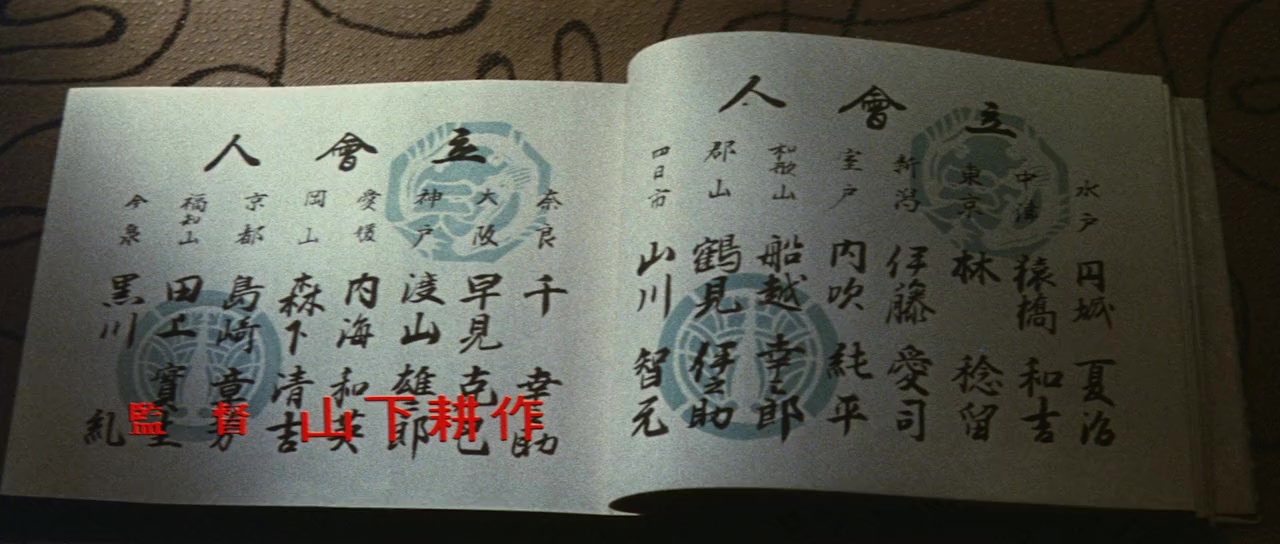 立會人
水戸 円城 夏治
中湊 猿橋 和吉
東京 林 稔留
新潟 伊藤 愛司
室戸 内吹 純平
和歌山 船越 幸之郎
郡山 鶴見 伊之助
四日市 山川 智元
立會人
奈良 千 幸助
大阪 早見 克己
神戸 渡山 雄郎
愛媛 内海 和英
岡山 森下 清吉
京都 島崎 章
福知山 田上
今泉 黒川 糺
監督 山下耕作